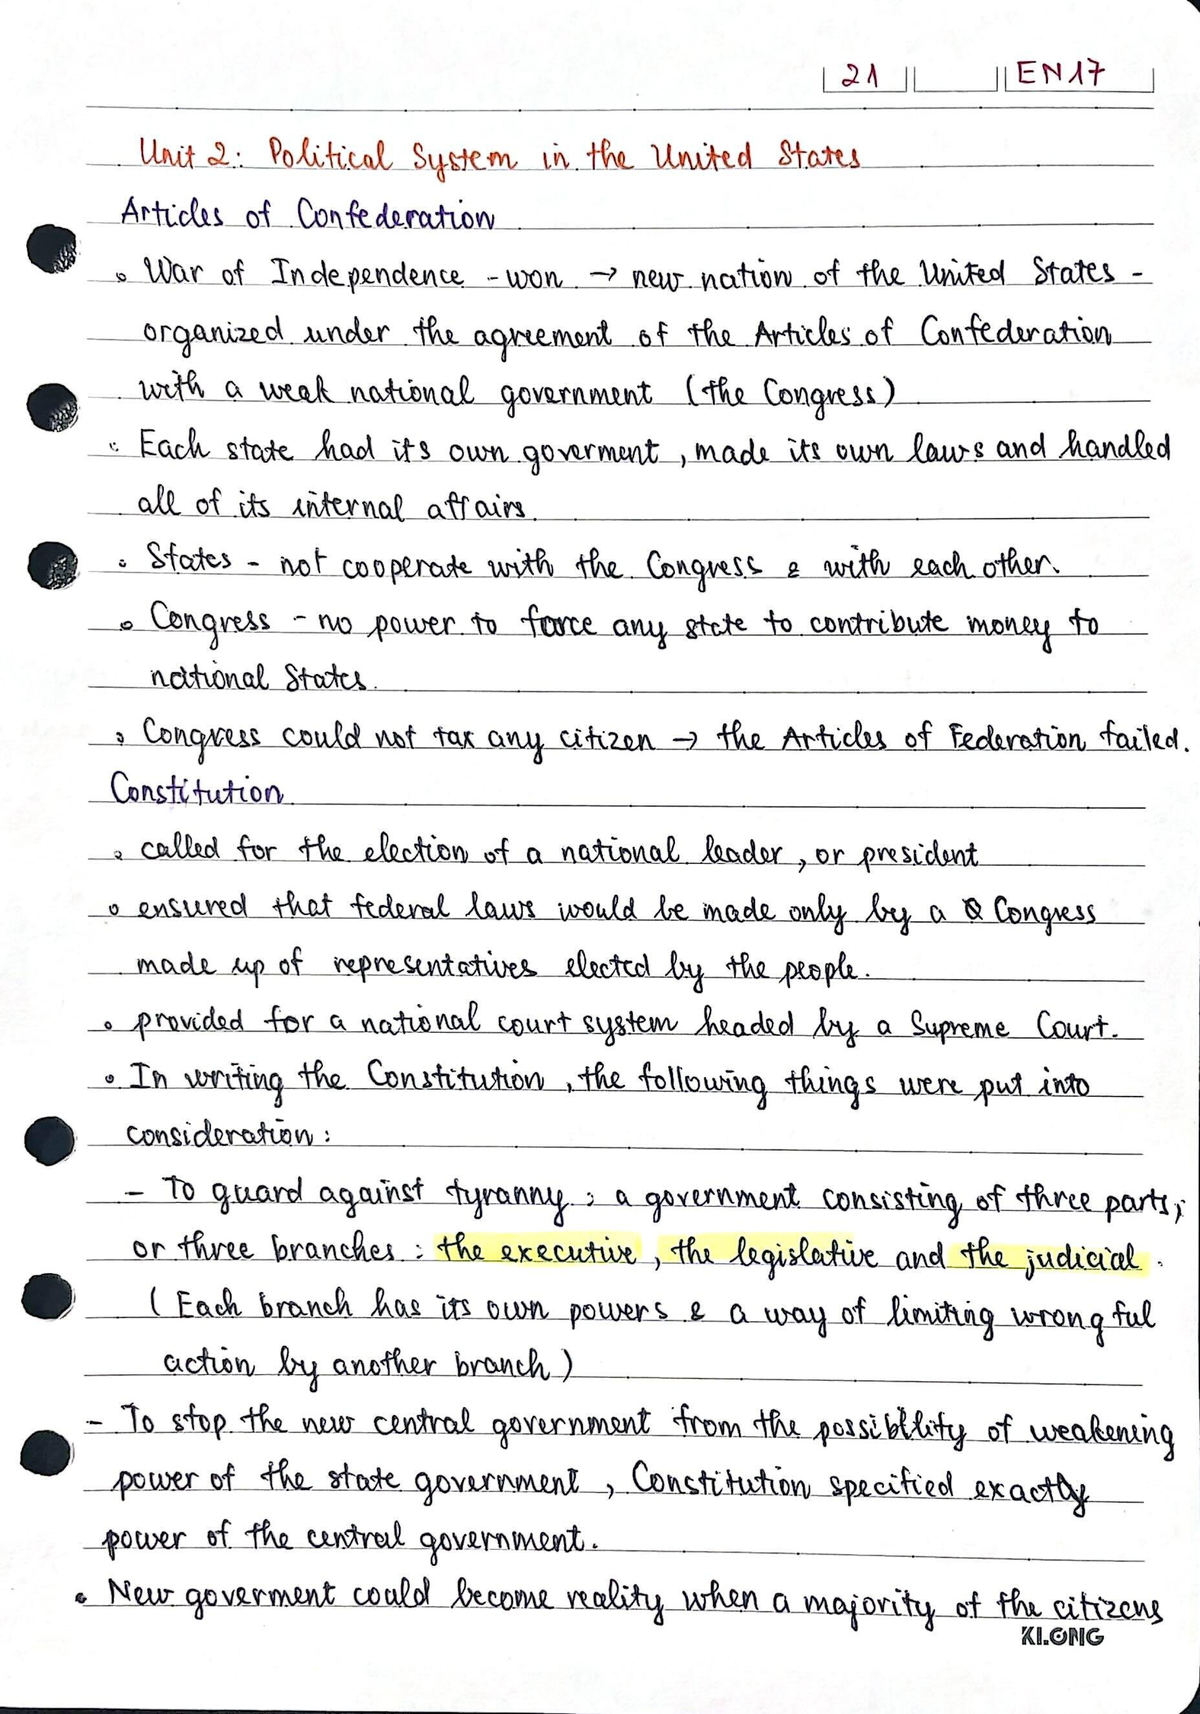 21 EN17
Unit 2: Political System in the United States
Articles of Confederation
War of Independence - won → new nation of the United States -
organized under the agreement of the Articles of Confederation
with a weak national government (the Congress)
Each state had its own goverment, made its own laws and handled
all of its internal affairs.
States - not cooperate with the Congress & with each other.
Congress - no power to force any state to contribute money to
national States.
Congress could not tax any citizen → the Articles of Federation failed.
Constitution
called for the election of a national leader, or president
ensured that federal laws would be made only by a Congress
made up of representatives elected by the people.
provided for a national court system headed by a Supreme Court.
In writing the Constitution, the following things were put into
consideration:
- To guard against tyranny: a government consisting of three parts,
or three branches: the executive, the legislative and the judicial.
(Each branch has its own powers & a way of limiting wrongful
action by another branch)
- To stop the new central government from the possibility of weakening
power of the state government, Constitution specified exactly
power of the central government.
New goverment could become reality when a majority of the citizens
KLONG